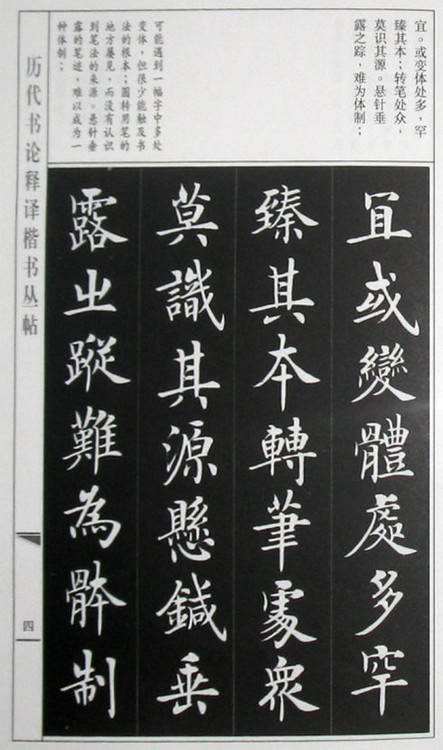 宜。或变体处多，罕
臻其本；转笔处众，
莫识其源。悬针垂
露之踪，难为体制；
可能遇到一幅字中多处
变体，但很少能触及书
法的根本；圆转用笔的
地方屡见，而没有认识
到笔法的来源。悬针垂
露的笔迹，难以成为一
种体制；
宜或變體處多罕
臻其本轉筆處衆
莫識其源懸鍼垂
露之蹤難為体制
历代书论释译楷书丛帖
四